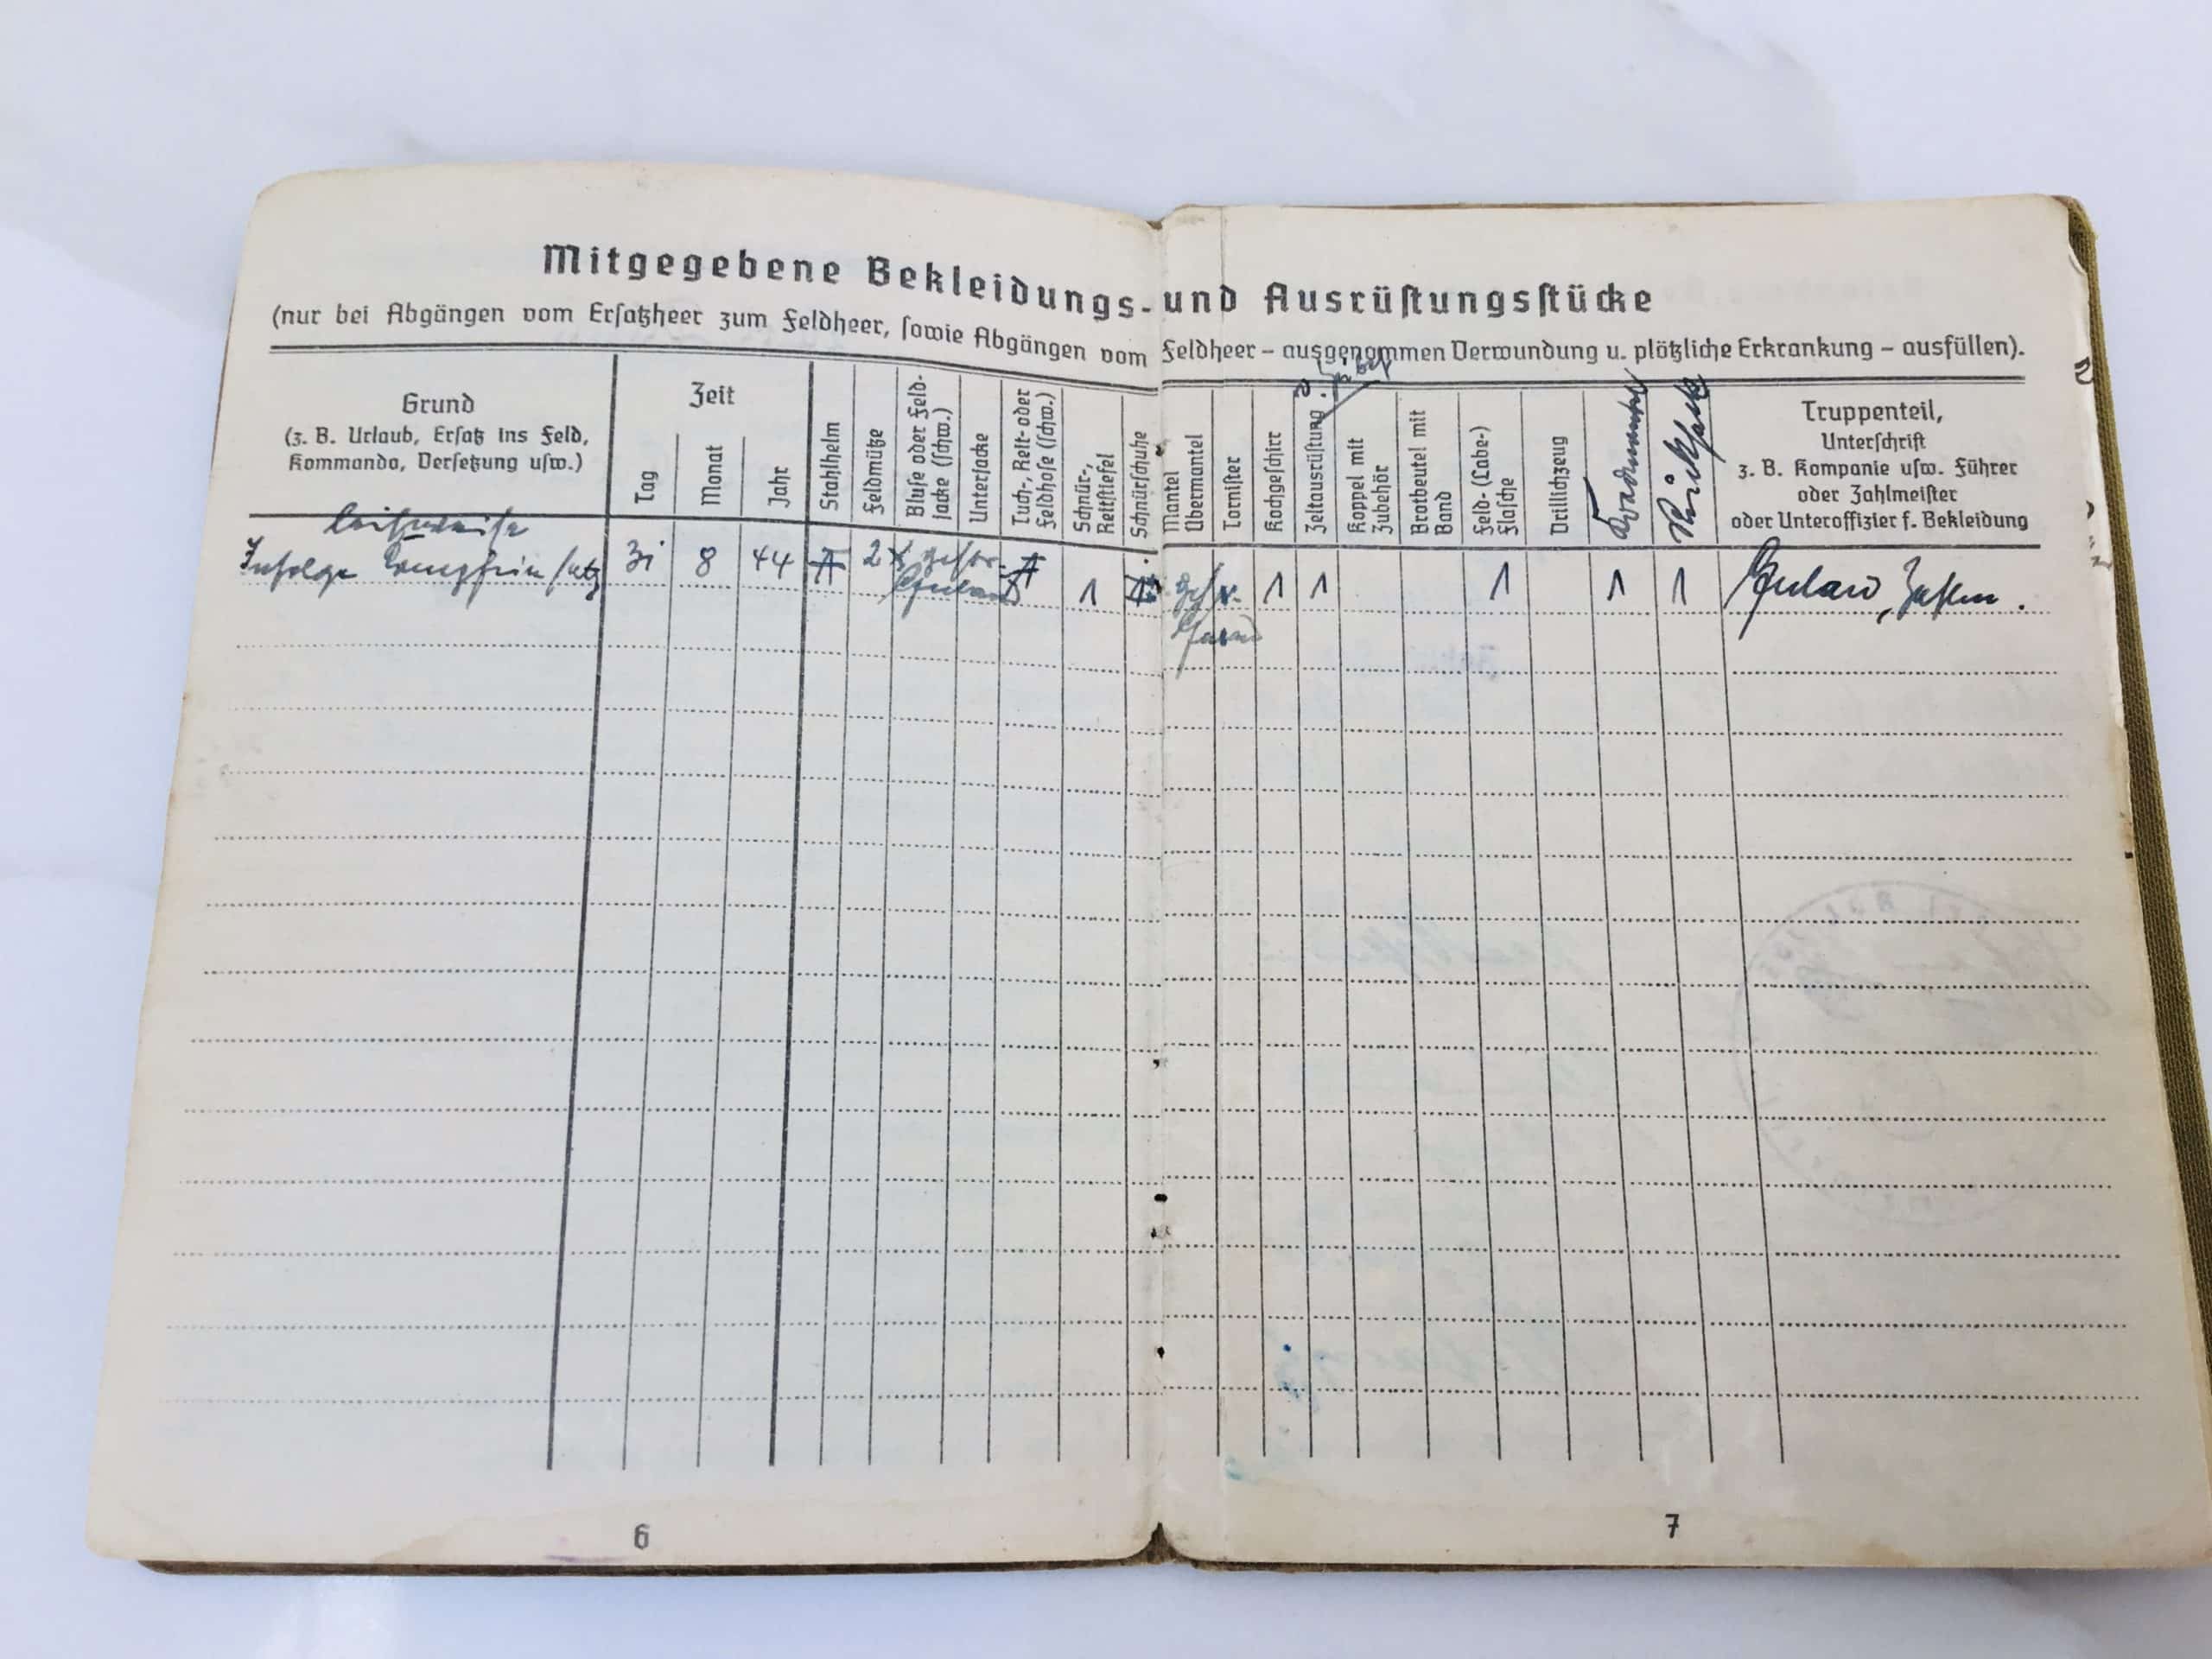 Mitgegebene Bekleidungs- und Ausrüſtungsſtücke
(nur bei Abgängen vom Erſatzheer zum Feldheer, ſowie Abgängen vom Feldheer – ausgenommen Verwundung u. plötzliche Erkrankung – ausfüllen).
Grund
(z. B. Urlaub, Erſatz ins Feld,
Kommando, Verſetzung uſw.)
Zeit
Tag
Monat
Jahr
Stahlhelm
Feldmütze
Bluſe oder Feld-
jacke (ſchw.)
Unterjacke
Tuch-, Reit- oder
Feldhoſe (ſchw.)
Schnür-,
Reitſtiefel
Schnürſchuhe
Mantel
Übermantel
Torniſter
Kochgeſchirr
Zeltausrüſtung
Koppel mit
Zubehör
Brotbeutel mit
Band
Feld- (Labe-)
Flaſche
Drillichzeug
Rückſack
Truppenteil,
Unterſchrift
z. B. Kompanie uſw. Führer
oder Zahlmeiſter
oder Unteroffizier f. Bekleidung
leihweiſe
Infolge 31 8 44 2 1 1 1 1 1 1
6
7